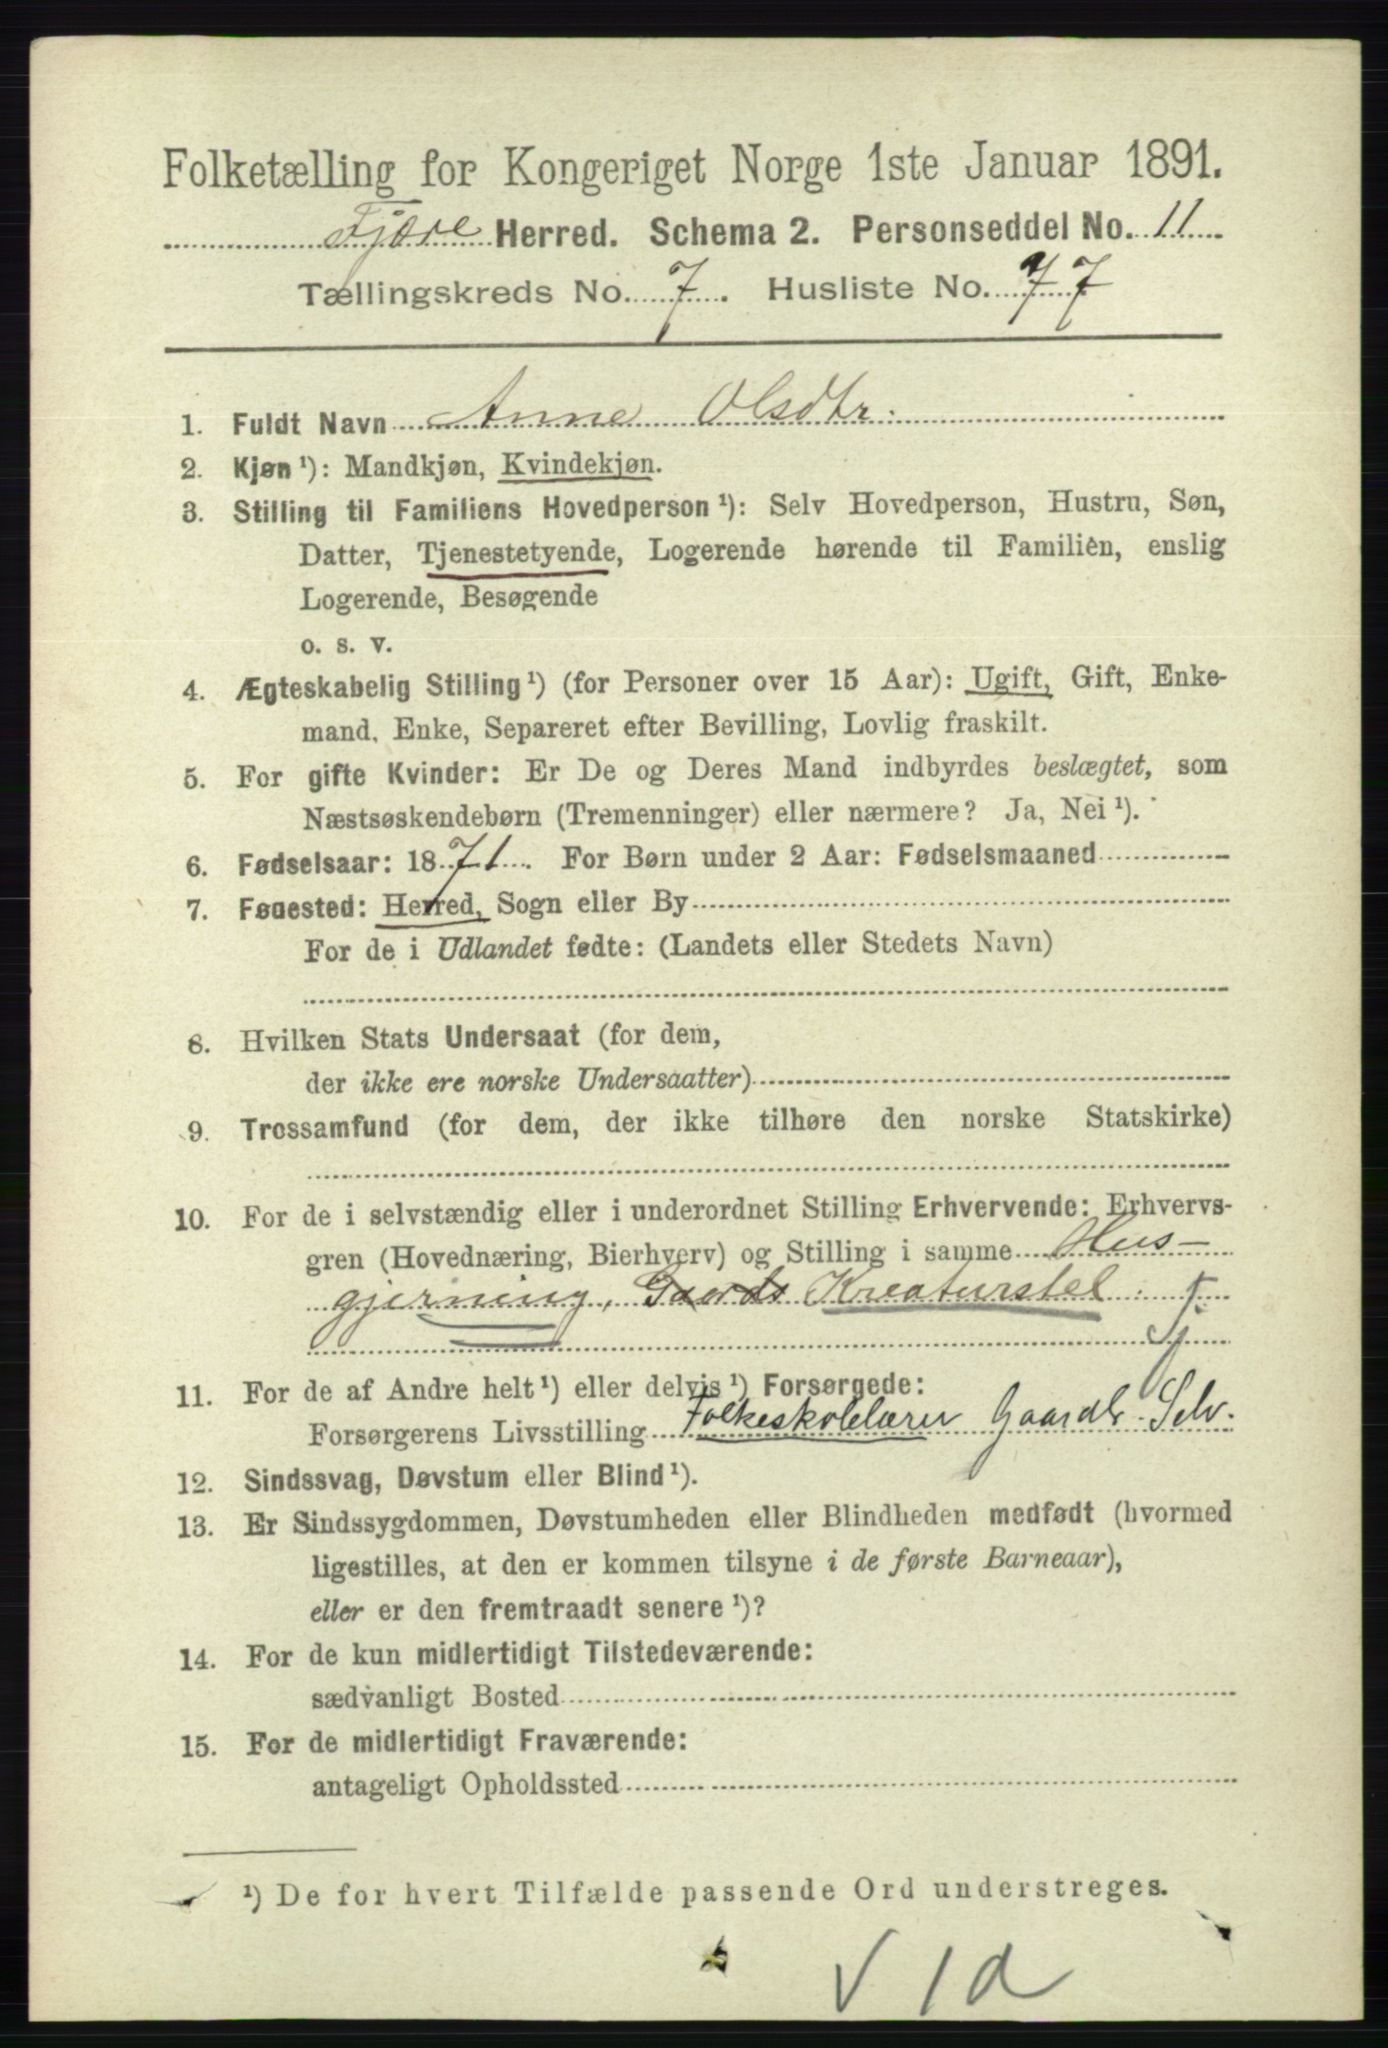 Folketælling for Kongeriget Norge 1ste Januar 1891.
Fjære Herred. Schema 2. Personseddel No. 11
Tællingskreds No. 7. Husliste No. 77
1. Fuldt Navn Anne Olsdtr.
2. Kjøn ¹): Mandkjøn, Kvindekjøn.
3. Stilling til Familiens Hovedperson ¹): Selv Hovedperson, Hustru, Søn,
Datter, Tjenestetyende, Logerende hørende til Familien, enslig
Logerende, Besøgende
o. s. v.
4. Ægteskabelig Stilling ¹) (for Personer over 15 Aar): Ugift, Gift, Enke-
mand, Enke, Separeret efter Bevilling, Lovlig fraskilt.
5. For gifte Kvinder: Er De og Deres Mand indbyrdes beslægtet, som
Næstsøskendebørn (Tremenninger) eller nærmere? Ja, Nei ¹).
6. Fødselsaar: 1871. For Børn under 2 Aar: Fødselsmaaned
7. Fødested: Herred, Sogn eller By
For de i Udlandet fødte: (Landets eller Stedets Navn)
8. Hvilken Stats Undersaat (for dem,
der ikke ere norske Undersaatter)
9. Trossamfund (for dem, der ikke tilhøre den norske Statskirke)
10. For de i selvstændig eller i underordnet Stilling Erhvervende: Erhvervs-
gren (Hovednæring, Bierhverv) og Stilling i samme Hus-
gjerning, Gaards Kreaturstel.
Tj
11. For de af Andre helt ¹) eller delvis ¹) Forsørgede:
Forsørgerens Livsstilling Folkeskolelærer Gaardb. Selv.
12. Sindssvag, Døvstum eller Blind ¹).
13. Er Sindssygdommen, Døvstumheden eller Blindheden medfødt (hvormed
ligestilles, at den er kommen tilsyne i de første Barneaar),
eller er den fremtraadt senere ¹)?
14. For de kun midlertidigt Tilstedeværende:
sædvanligt Bosted
15. For de midlertidigt Fraværende:
antageligt Opholdssted
¹) De for hvert Tilfælde passende Ord understreges.
V 1a